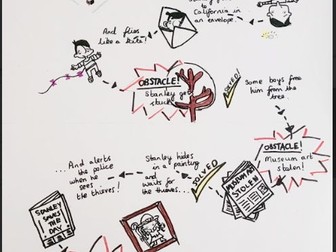 to
California in
an envelope.
And flies
like a kite!
OBSTACLE!
Stanley gets
stuck!
SOLVED
Some boys free
him from the
tree.
OBSTACLE!
Museum art
stolen!
MUSEUM ART
STOLEN
SOLVED
Stanley hides
in a painting
and waits
for the
thieves...
...And alerts
the police
when he
sees
the thieves!
STANLEY
SAVES
THE
DAY